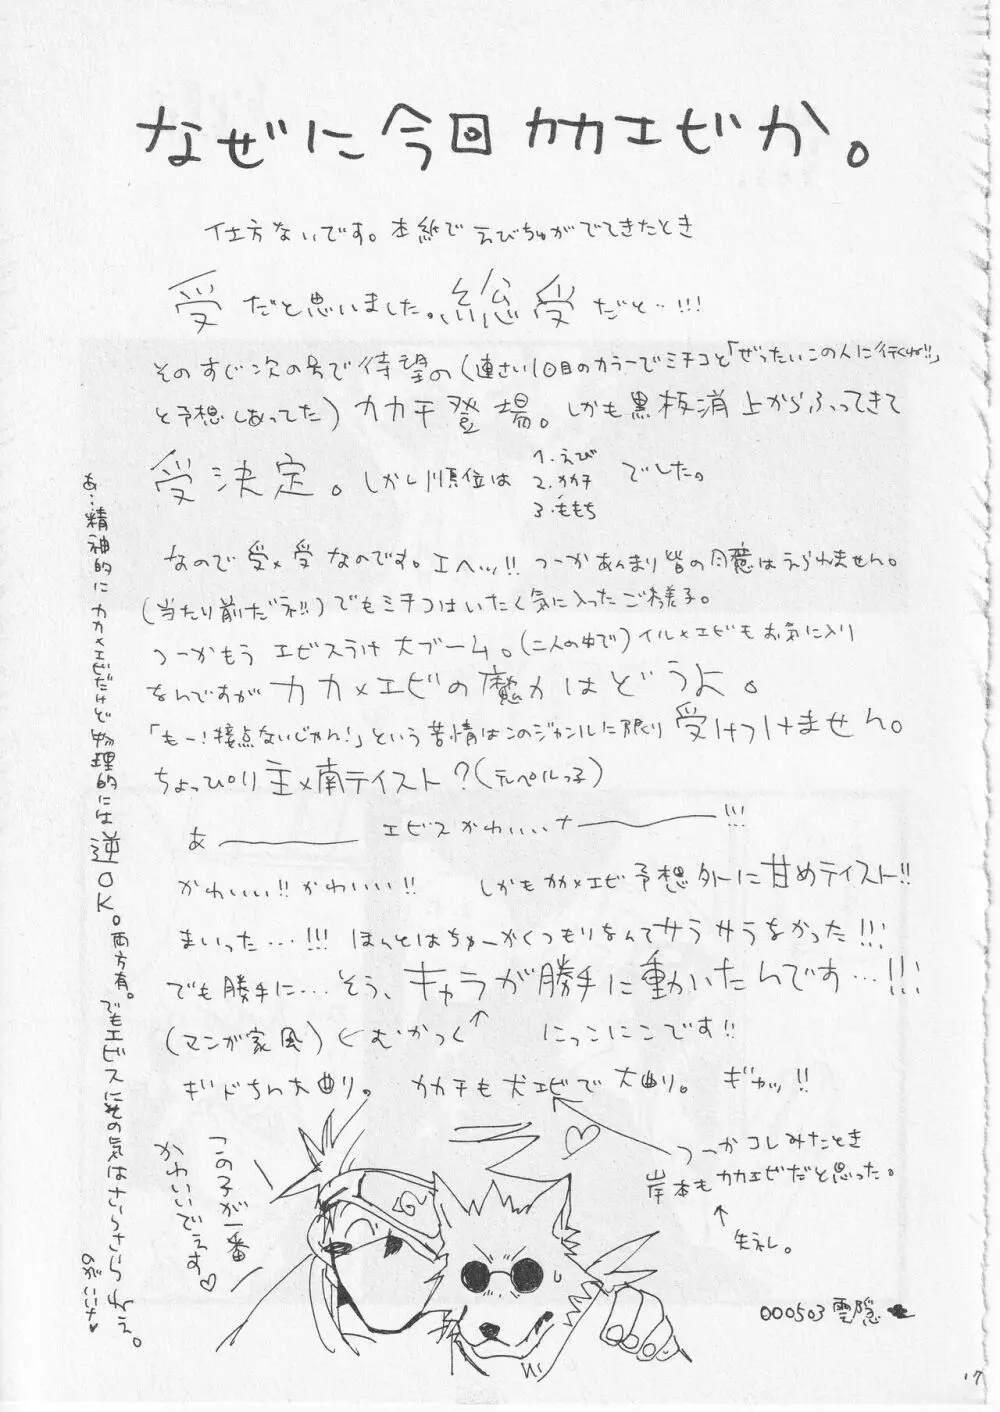 なぜに今回カカエビか。
仕方ないです。本紙でえびちゅがでてきたとき
受だと思いました。総受だと…!!!
そのすぐ次の号で待望の(連さい10回目のカラーでミチコと「ぜったいこの人に行くね!!」
と予想しあってた)カカチ登場。しかも黒板消上からふってきて
受決定。しかし順位は
1.えび
2.カカチ
3.ももち
でした。
なので受×受なのです。エヘッ!!つーかあんまり皆の同意はえられません。
(当たり前だラ!!)でもミチコはいたく気に入ったご様子。
つーかもうエビスうけ大ブーム。(二人の中で)イル×エビもお気に入り
なんですがカカ×エビの魔力はどうよ。
「もー!接点ないじゃん!」という苦情はこのジャンルに限り受けつけません。
ちょっぴり主×南テイスト?(テルペルっ子)
あ―――エビスかわいいナ―――!!!
かわいい!!かわいい!! しかもカカ×エビ予想外に甘めテイスト!!
まいった…!!!ほんとはちゅーがくつもりなんてサラサラなかった!!!
でも勝手に…そう、キャラが勝手に動いたんです…!!!
(マンガ家風)←むかつく にっこにこです!!
ギドちん大曲り。 カカチも犬エビで大曲り。 ギャッ!!
つーかコレみたとき
岸本もカカエビだと思った。
↑
失礼。
この子が一番
かわいいでぇす♡
あ…精神的にカカ×エビだけど物理的には逆OK。両方有。でもエビスにその気はさらさらねぇ。
のがいいナ♥
000503 雲隠
17